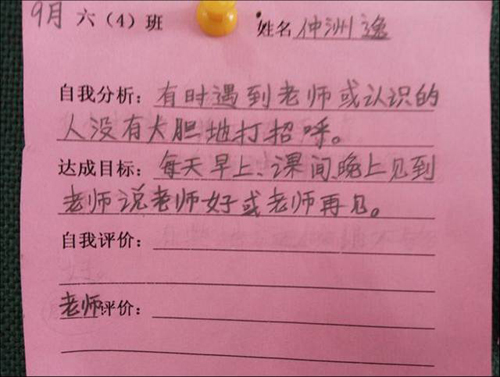 9月 六（4）班 姓名 仲洲逸
自我分析：有时遇到老师或认识的
人没有大胆地打招呼。
达成目标：每天早上、课间、晚上见到
老师说老师好或老师再见。
自我评价：
老师评价：